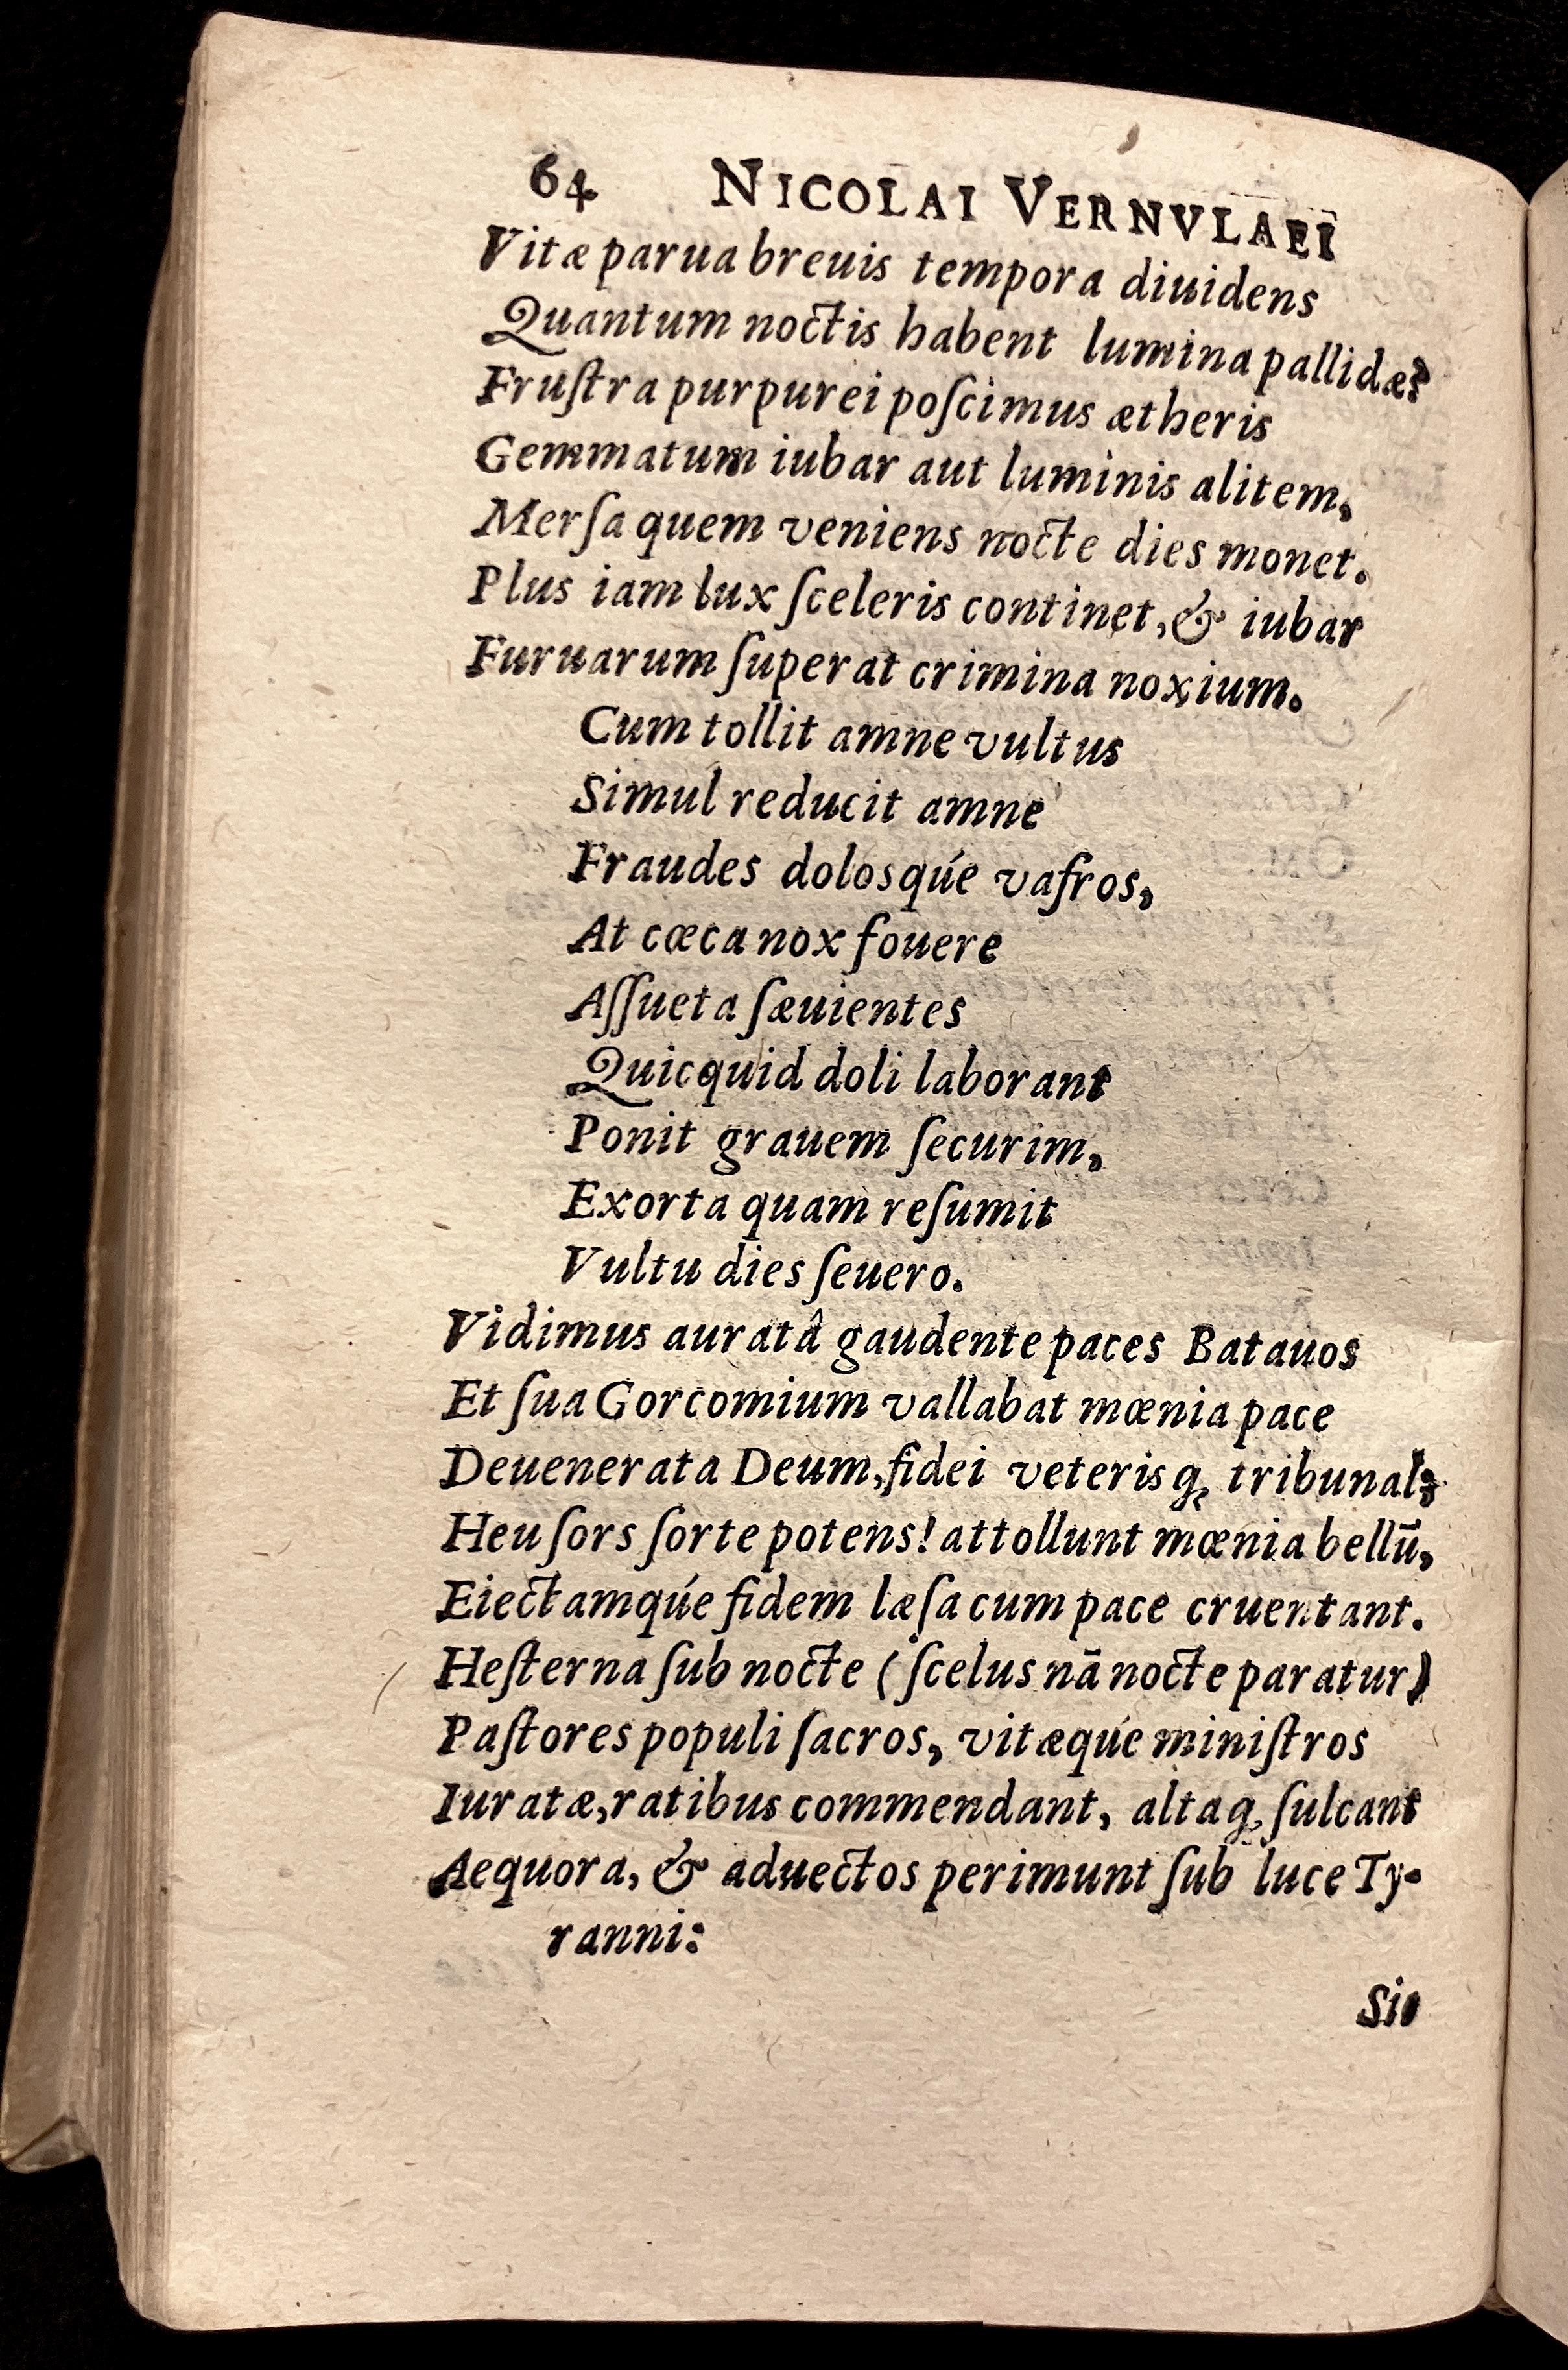 64 NICOLAI VERNVLAEI
Vitæ parua breuis tempora diuidens
Quantum noctis habent lumina pallidæ?
Fruſtra purpurei poſcimus ætheris
Gemmatum iubar aut luminis alitem,
Merſa quem veniens nocte dies monet.
Plus iam lux ſceleris continet, & iubar
Furuarum ſuperat crimina noxium.
Cum tollit amne vultus
Simul reducit amne
Fraudes dolosqúe vafros,
At cœca nox fouere
Aſſueta ſæuientes
Quicquid doli laborant
Ponit grauem ſecurim,
Exorta quam reſumit
Vultu dies ſeuero.
Vidimus auratâ gaudente paces Batauos
Et ſua Gorcomium vallabat mœnia pace
Deuenerata Deum, fidei veterisq; tribunal;
Heu ſors ſorte potens! attollunt mœnia bellū,
Eiectamqúe fidem læſa cum pace cruentant.
Heſterna ſub nocte (ſcelus nā nocte paratur)
Paſtores populi ſacros, vitæqúe miniſtros
Iuratæ, ratibus commendant, altaq; ſulcant
Aequora, & aduectos perimunt ſub luce Ty-
ranni:
Sic